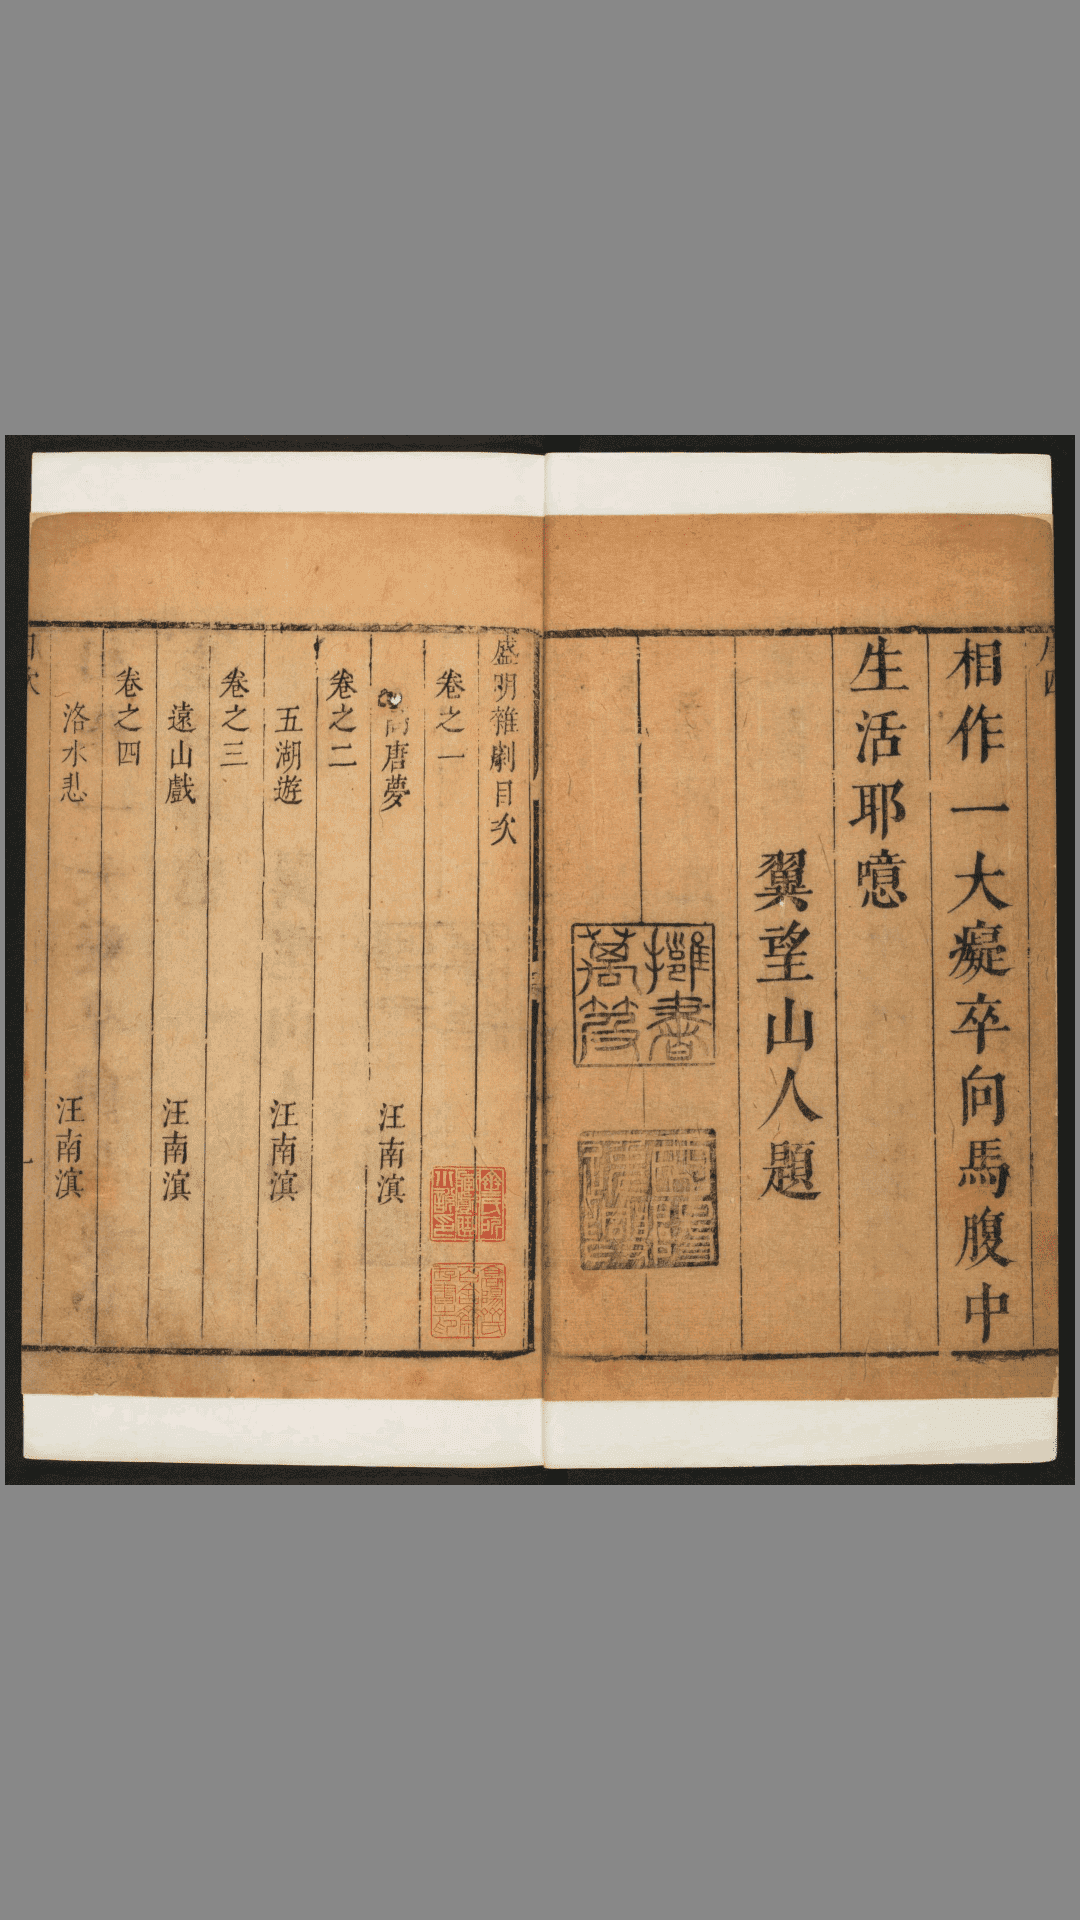 相作一大癡卒向馬腹中
生活耶噫
翼望山人題
擁書萬
盛明雜劇目次
卷之一
唐夢
汪南溟
卷之二
五湖遊
汪南溟
卷之三
遠山戲
汪南溟
卷之四
洛水悲
汪南溟